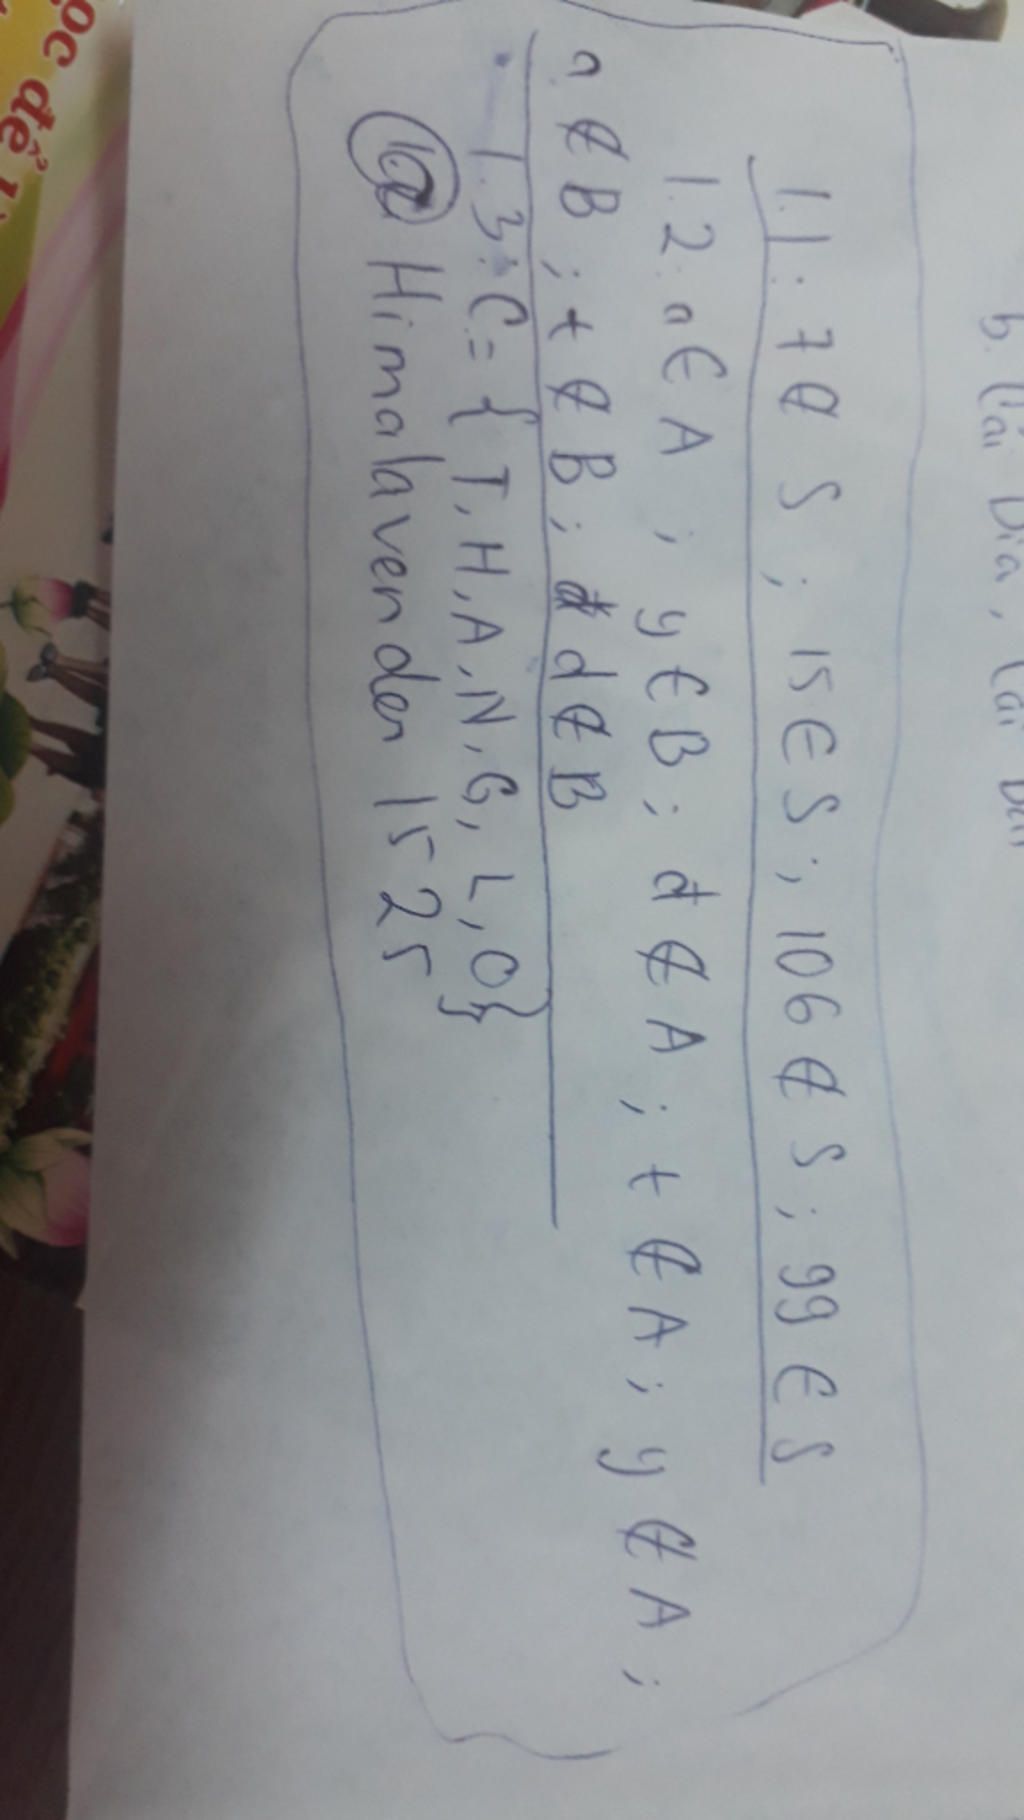 b. Cái Dĩa, Cái
1.1: 7 ∉ S ; 15 ∈ S ; 106 ∉ S ; 99 ∈ S
1.2: a ∈ A ; y ∈ B ; đ ∉ A ; t ∉ A ; y ∉ A ;
a ∉ B ; t ∉ B ; d ∉ B
1.3: C = { T, H, A, N, G, L, O }
@ Himalavender 1525
ọc để